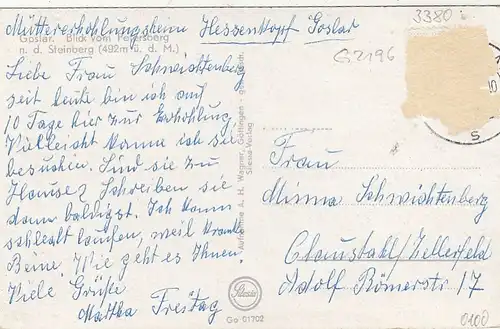 Müttererholungsheim Hessenkopf Goslar
Goslar. Blick vom Petersberg
n. d. Steinberg (492m ü. d. M.)
Liebe Frau Schwichtenberg
seit heute bin ich auf
10 Tage hier zur Erhohlung
Villeicht kann ich sie
besuchen. Sind sie zu
Hause? Schreiben sie
dann baldigst. Ich kann
schlecht laufen, weil kranke
Beine. Wie geht es Ihnen.
Viele Grüße
Martha Freitag
Aufnahme A. H. Wagner, Göttingen - gesch.
Stesie-Verlag
Stesie
Go 01702
3380
G2196
S
Frau
Minna Schwichtenberg
Claustahl/Zellerfeld
Adolf Römerstr 17
0100